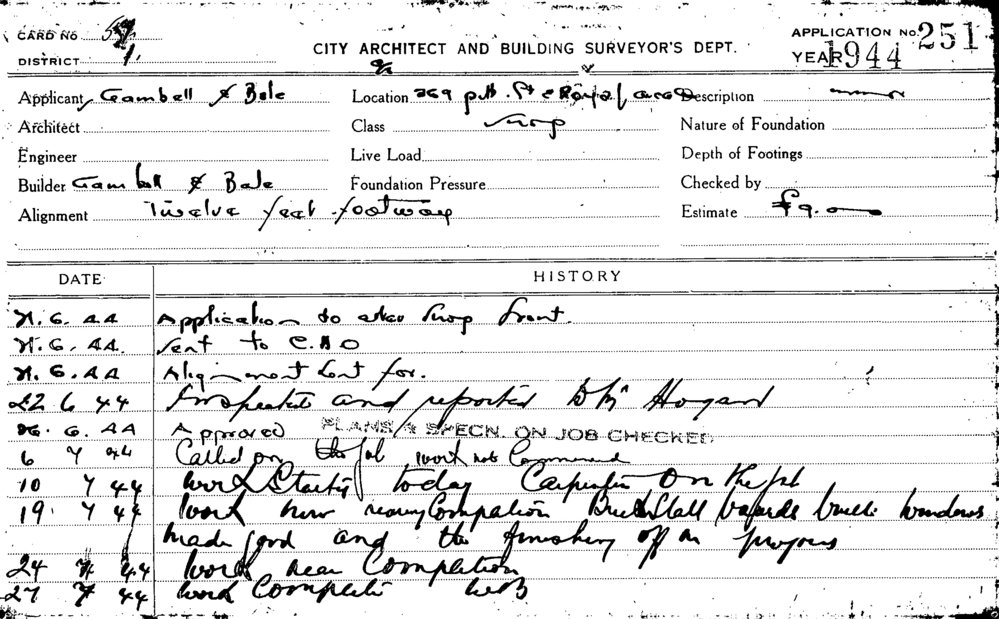 CARD NO
APPLICATION NO. 251
DISTRICT 1.
CITY ARCHITECT AND BUILDING SURVEYOR'S DEPT.
YEAR 1944
Applicant Gambell & Bale Location 269 Pitt St & Royal Arcade Description
Architect Class Shop Nature of Foundation
Engineer Live Load Depth of Footings
Builder Gambell & Bale Foundation Pressure Checked by
Alignment Twelve feet footway Estimate £9.
DATE HISTORY
6. 44 Application to alter shop front.
6. 44. Sent to
6. 44 Alignment sent for.
22 6 44 Inspected and reported Hogan
6. 44 Approved PLANS & SPECN. ON JOB CHECKED
6 7 44 Called on the job work not Commenced
10 7 44 work Started today Carpenter on the job
19. 7 44 Work now nearing Completion built windows
made good and the finishing off in progress
24 7 44 Work near Completion
27 7 44 Work Complete